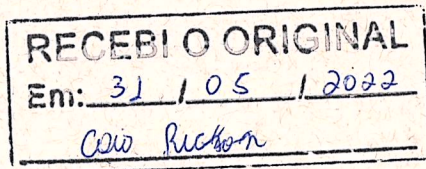 RECEBI O ORIGINAL
Em: 31 / 05 / 2022
Caio